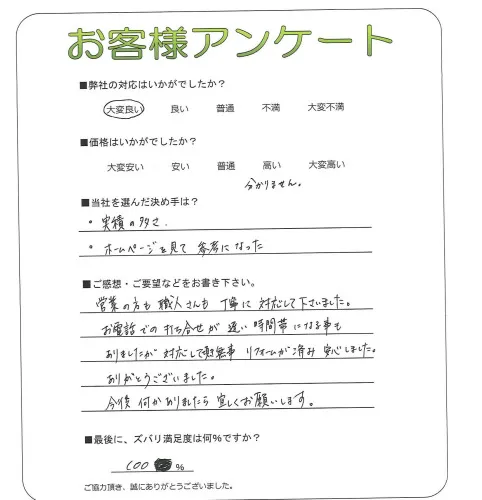 お客様アンケート
■弊社の対応はいかがでしたか？
大変良い 良い 普通 不満 大変不満
■価格はいかがでしたか？
大変安い 安い 普通 高い 大変高い
分かりません。
■当社を選んだ決め手は？
・実績の多さ.
・ホームページを見て 参考になった
■ご感想・ご要望などをお書き下さい。
営業の方も 職人さんも 丁寧に 対応して下さいました。
お電話での 打ち合せが 遅い 時間帯になる事も
ありましたが 対応して 無事 リフォームが済み 安心しました。
ありがとうございました。
今後 何かありましたら 宜しくお願いします。
■最後に、ズバリ満足度は何％ですか？
100 %
ご協力頂き、誠にありがとうございました。